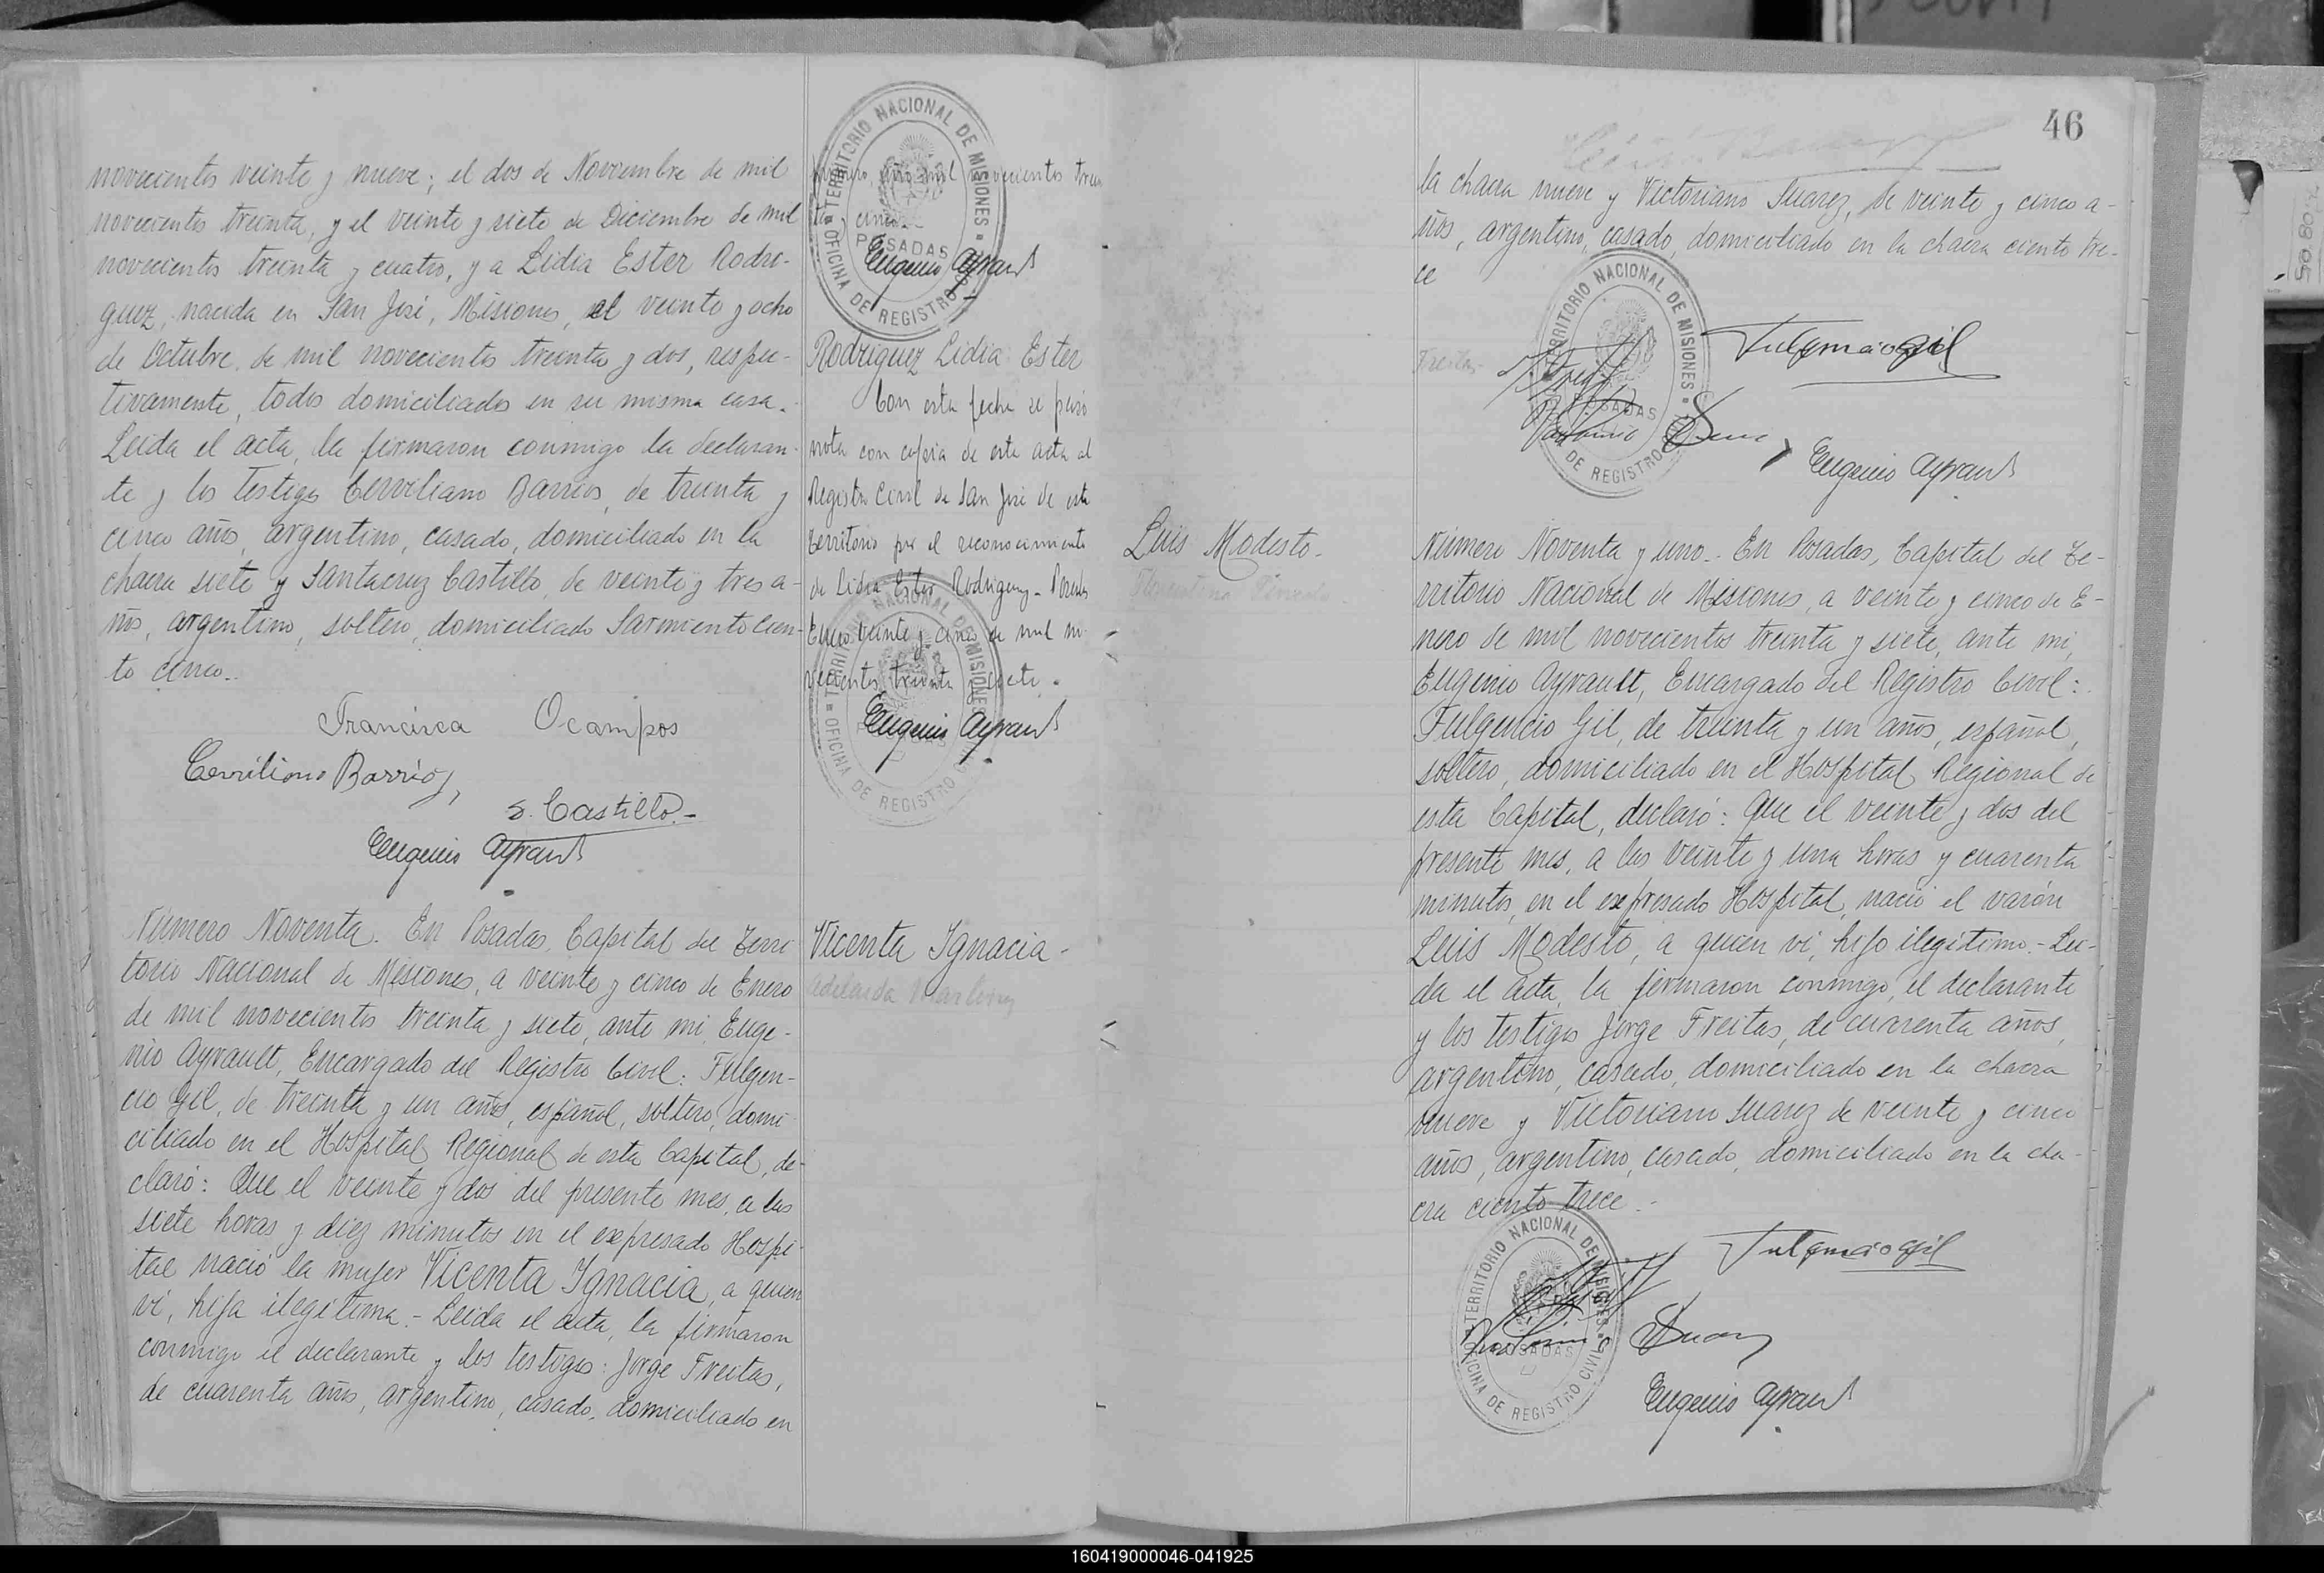 novecientos veinte y nueve; el dos de Noviembre de mil
novecientos treinta, y el veinte y siete de Diciembre de mil
novecientos treinta y cuatro, y a Lidia Ester Rodri-
guez, nacida en San José, Misiones, el veinte y ocho
de Octubre de mil novecientos treinta y dos, respec-
tivamente, todos domiciliados en su misma casa.
Leida el acta, la firmaron conmigo la declaran-
te y los testigos Cerviliano Barrios, de treinta y
cinco años, argentino, casado, domiciliado en la
chacra siete y Santacruz Castillo, de veinte y tres a-
ños, argentino, soltero, domiciliado Sarmiento cien-
to cinco.-
Francisca Ocampos
Cerviliano Barrios,
S. Castillo.-
Eugenio Ayrault
Número Noventa. En Posadas, Capital del Terri-
torio Nacional de Misiones, a veinte y cinco de Enero
de mil novecientos treinta y siete, ante mi, Euge-
nio Ayrault, Encargado del Registro Civil: Fulgen-
cio Gil, de treinta y un años, español, soltero, domi-
ciliado en el Hospital Regional de esta Capital, de-
claró: Que el veinte y dos del presente mes, a las
siete horas y diez minutos en el expresado Hospi-
tal nació la mujer Vicenta Ignacia, a quien
vi, hija ilegitima.- Leida el acta, la firmaron
conmigo el declarante y los testigos: Jorge Freitas,
de cuarenta años, argentino, casado, domiciliado en
mil novecientos trein
ta y cinco.-
Eugenio Ayrault
TERRITORIO NACIONAL DE MISIONES
POSADAS
OFICINA DE REGISTRO CIVIL
Rodriguez Lidia Ester
Con esta fecha se pasó
nota con copia de esta acta al
Registro Civil de San José de este
territorio por el reconocimiento
de Lidia Ester Rodriguez.- Posadas
Enero veinte y cinco de mil no-
vecientos treinta y siete.
Eugenio Ayrault
TERRITORIO NACIONAL DE MISIONES
POSADAS
OFICINA DE REGISTRO CIVIL
Vicenta Ignacia -
Adelaida Martinez
46
la chacra nueve y Victoriano Suarez, de veinte y cinco a-
ños, argentino, casado, domiciliado en la chacra ciento tre-
ce
Freitas
Fulgencio Gil
TERRITORIO NACIONAL DE MISIONES
POSADAS
OFICINA DE REGISTRO CIVIL
Eugenio Ayrault
Luis Modesto.-
Número Noventa y uno.- En Posadas, Capital del Te-
rritorio Nacional de Misiones, a veinte y cinco de E-
nero de mil novecientos treinta y siete, ante mi,
Eugenio Ayrault, Encargado del Registro Civil:
Fulgencio Gil, de treinta y un años, español,
soltero, domiciliado en el Hospital Regional de
esta Capital, declaró: Que el veinte y dos del
presente mes, a las veinte y una horas y cuarenta
minutos, en el expresado Hospital, nació el varón
Luis Modesto, a quien vi, hijo ilegitimo.- Lei-
da el acta, la firmaron conmigo, el declarante
y los testigos Jorge Freitas, de cuarenta años,
argentino, casado, domiciliado en la chacra
nueve y Victoriano Suarez de veinte y cinco
años, argentino, casado, domiciliado en la cha-
cra ciento trece.-
Fulgencio Gil
TERRITORIO NACIONAL DE MISIONES
POSADAS
OFICINA DE REGISTRO CIVIL
Suarez
Eugenio Ayrault
160419000046-041925